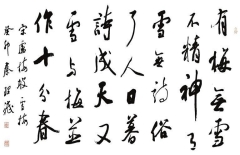 有梅無雪
不精神有
雪無詩俗
了人日暮
詩成天又
雪與梅並
作十分春
宋盧梅坡雪梅
癸卯秦